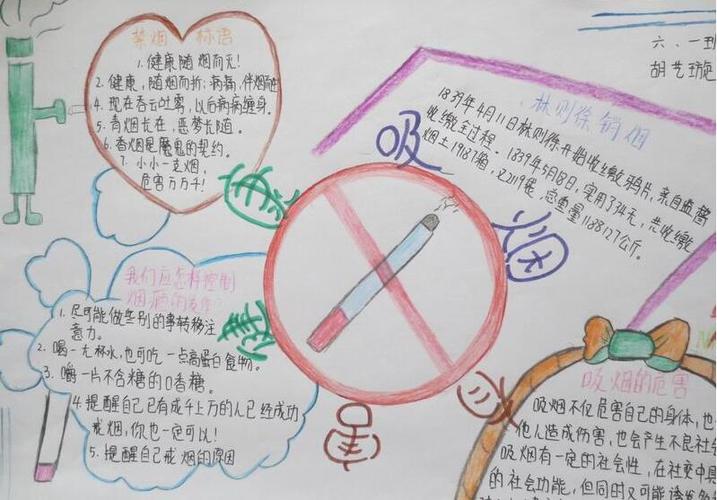 禁烟标语
1.健康随烟而无!
2.健康,随烟而折;病痛,伴烟
4.现在吞云吐雾,以后病病缠身。
5.青烟长在,恶梦长随。
6.香烟是魔鬼的契约。
7.小小一支烟,
危害万万千!
六、一班
胡艺璇
林则徐销烟
1839年4月11日林则徐开始收缴鸦片,亲自监督
收缴全过程。1839年5月18日,实用了34天,共收缴
烟土19187箱,又2119袋,总重量1188127公斤。
吸
烟
我们应怎样控制
烟瘾的发作?
1.尽可能做些别的事转移注
意力。
2.喝一大杯水,也可吃一点高蛋白食物。
3.嚼一片不含糖的口香糖。
4.提醒自己已有成千上万的人已经成功
戒烟,你也一定可以!
5.提醒自己戒烟的原因
吸烟的危害
吸烟不仅危害自己的身体,也
他人造成伤害,也会产生不良社会
吸烟有一定的社会性,在社交中具
的社会功能,但同时又可能诱发